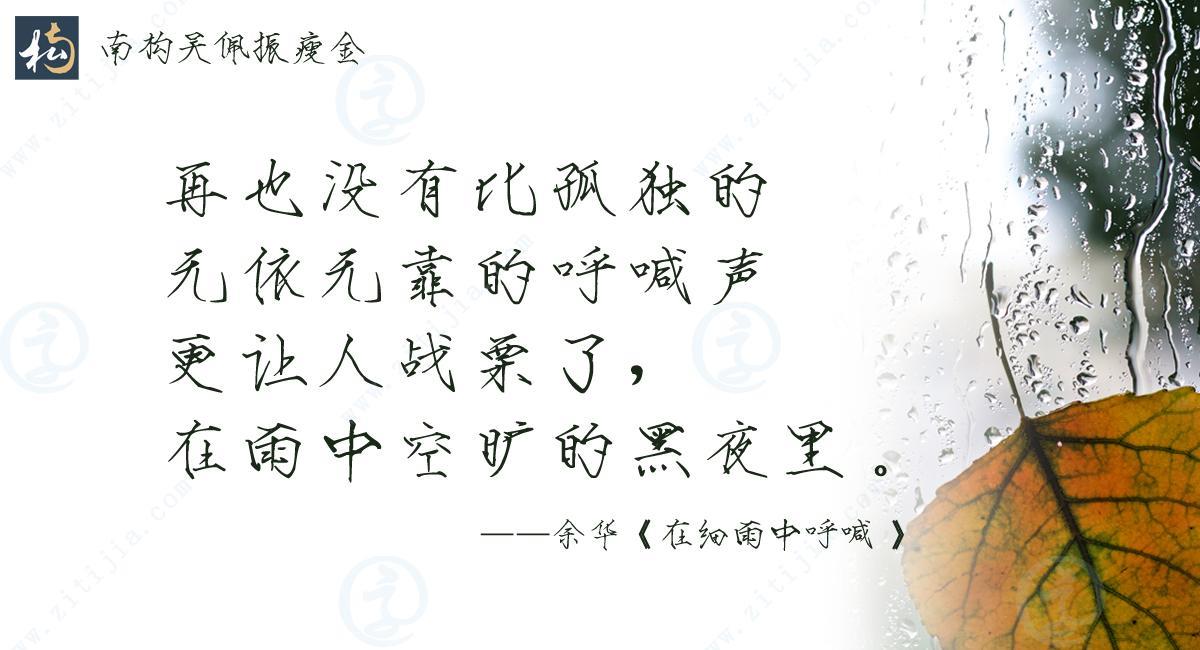 构
南构吴佩振瘦金
再也没有比孤独的
无依无靠的呼喊声
更让人战栗了，
在雨中空旷的黑夜里。
——余华《在细雨中呼喊》
www.zitijia.com